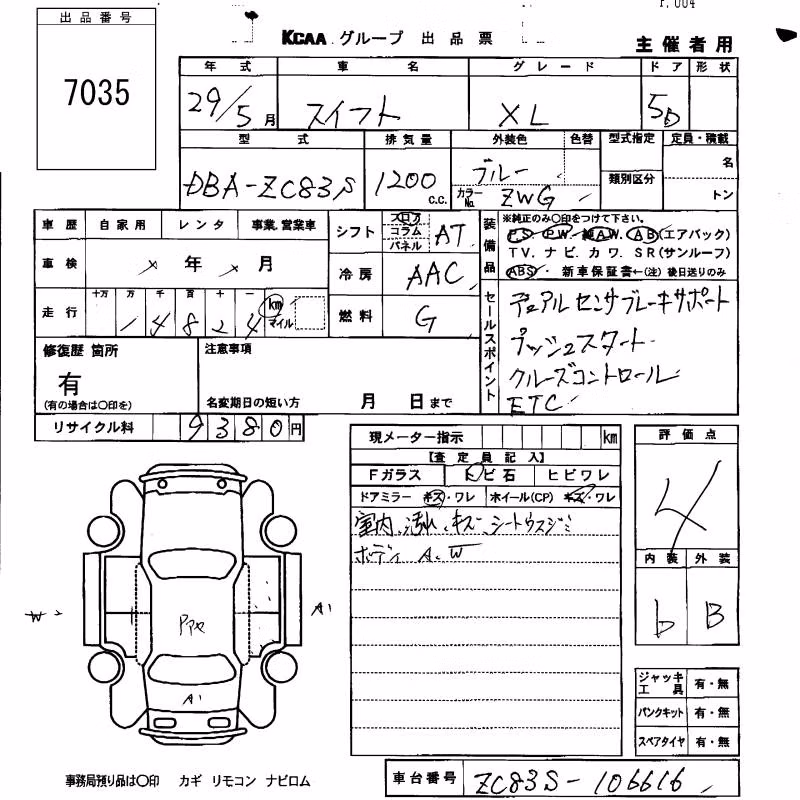 出品番号
7035
KCAA グループ 出品票
主催者用
年式 車名 グレード ドア 形状
29/5月 スイフト XL 5D
型式 排気量 外装色 色替 型式指定 定員・積載
DBA-ZC83S 1200 c.c. ブルー 名
カラーNo. ZWG 類別区分 トン
車歴 自家用 レンタ 事業.営業車
車検 年 月
走行 十万 万 千 百 十 一
1 4 8 2 4 km マイル
シフト フロア コラム パネル AT
冷房 AAC
燃料 G
装備品
※純正のみ〇印をつけて下さい。
P.S. P.W. 純A.W. A.B(エアバック)
T.V. ナビ. カワ. SR(サンルーフ)
ABS. 新車保証書←(注) 後日送りのみ
セールスポイント
デュアルセンサブレーキサポート
プッシュスタート
クルーズコントロール
ETC
修復歴 箇所 注意事項
有
(有の場合は〇印を) 名変期日の短い方 月 日まで
リサイクル料 9380円
現メーター指示 km
【査定員記入】
Fガラス トビ石 ヒビワレ
ドアミラー キズ・ワレ ホイール(CP) キズ・ワレ
室内、汚れ、キズ、シートウスジミ
ボディ A、W
評価点
4
内装 外装
b B
W
A1
A1
ジャッキ工具 有・無
パンクキット 有・無
スペアタイヤ 有・無
事務局預り品は〇印 カギ リモコン ナビロム
車台番号 ZC83S-106616